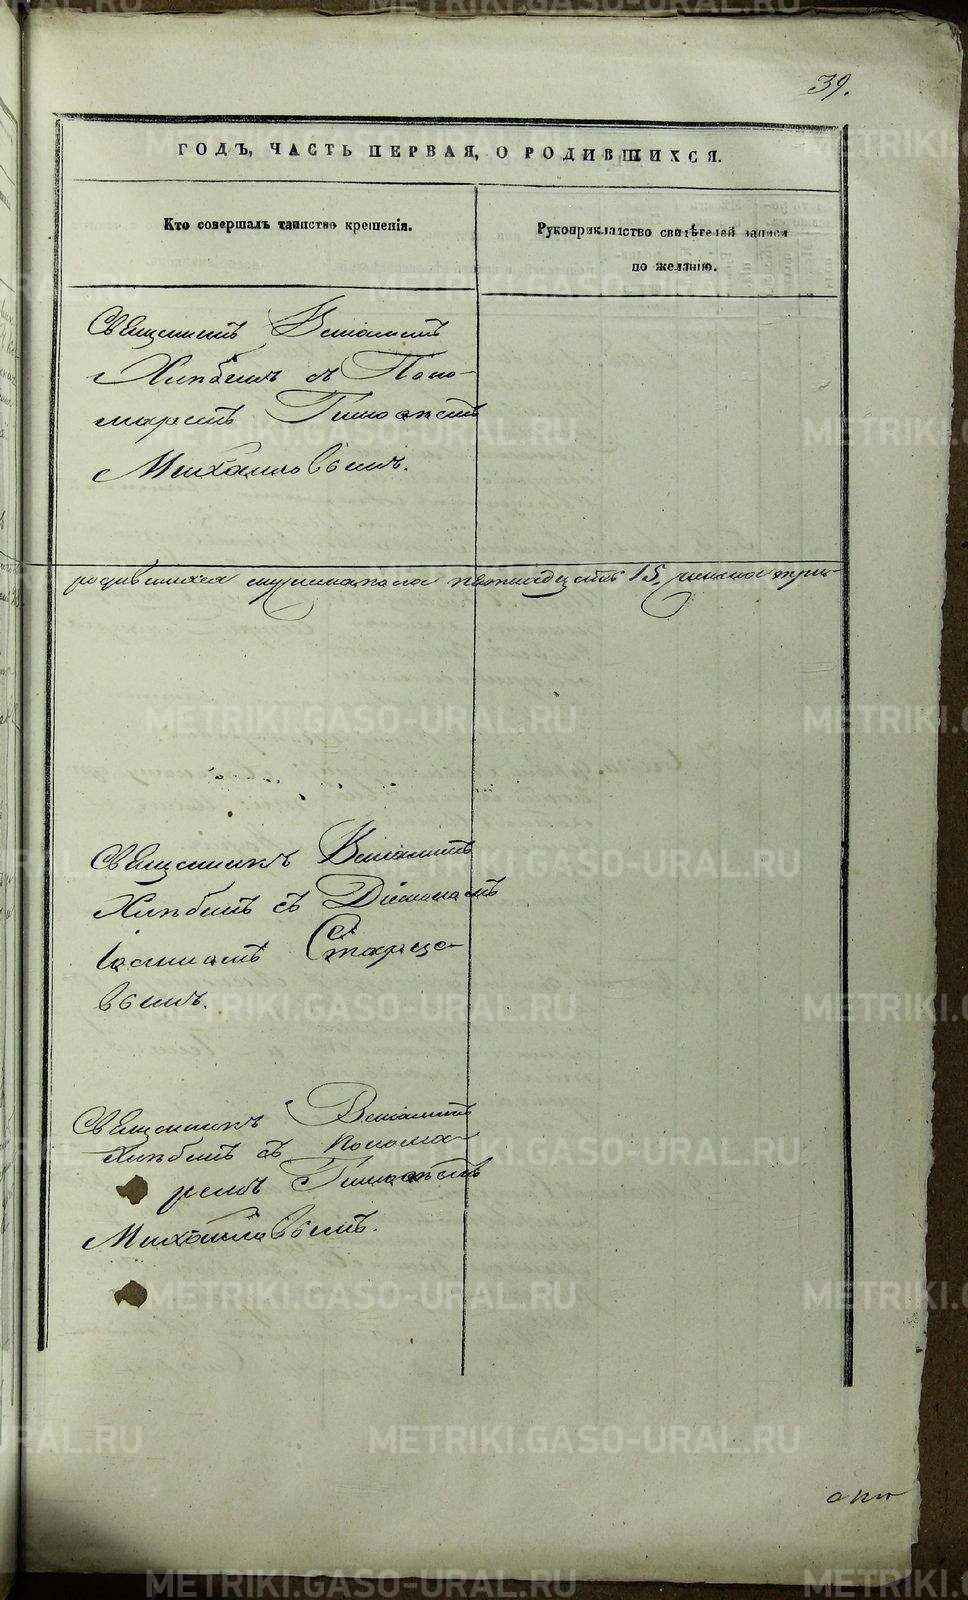 39.
ГОДЪ, ЧАСТЬ ПЕРВАЯ, О РОДИВШИХСЯ.
Кто совершалъ таинство крещенія.
Рукоприкладство свидѣтелей записи
по желанію.
Священникъ Веніаминъ
Хлѣбинъ съ Поно-
маремъ Тимоѳеемъ
Михайловымъ.
родившихся мужеска пола пятнадцать 15, женска три-
Священникъ Веніаминъ
Хлѣбинъ съ Діакономъ
Іоанномъ Старце-
вымъ.
Священникъ Веніаминъ
Хлѣбинъ съ Понома-
ремъ Тимоѳеемъ
Михайловымъ.
METRIKI.GASO-URAL.RU